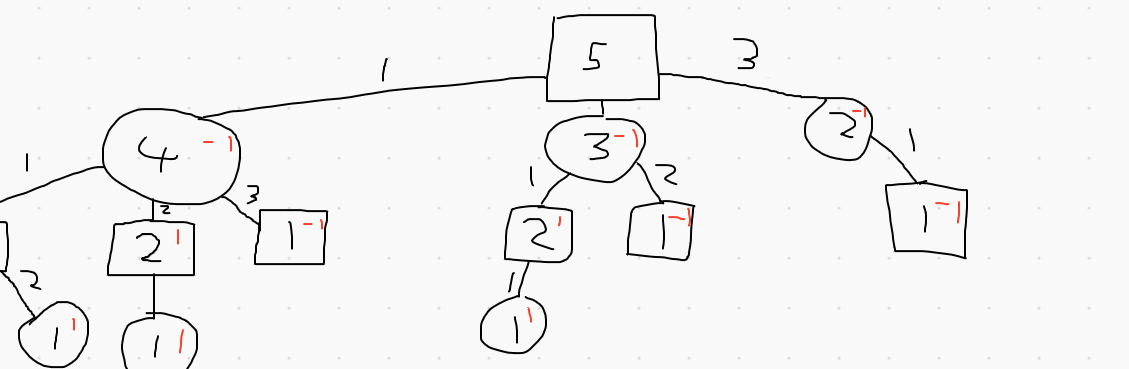 5
1
3
4 -1
3 -1
2 -1
1
2
3
1
2
1
2 1
1 -1
2 1
1 -1
1 -1
2
1
1 1
1 1
1 1